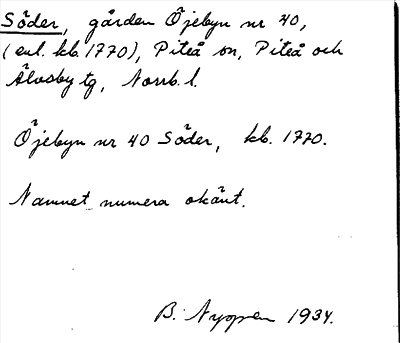 Söder, gården Öjebyn nr 40,
(enl. kb. 1770), Piteå sn, Piteå och
Älvsby tg, Norrb. l.
Öjebyn nr 40 Söder, kb. 1770.
Namnet numera okänt.
B. Nyppen 1934.